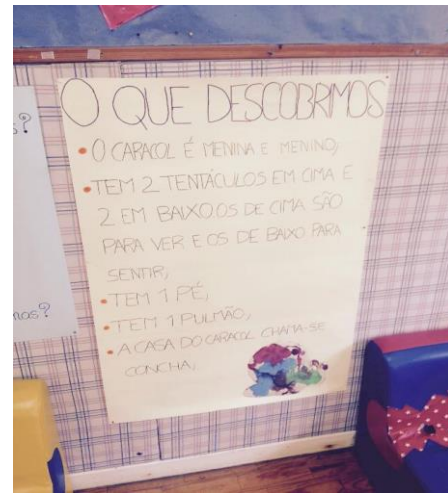 O QUE DESCOBRIMOS
• O CARACOL É MENINA E MENINO;
• TEM 2 TENTÁCULOS EM CIMA E
2 EM BAIXO. OS DE CIMA SÃO
PARA VER E OS DE BAIXO PARA
SENTIR;
• TEM 1 PÉ;
• TEM 1 PULMÃO;
• A CASA DO CARACOL CHAMA-SE
CONCHA;